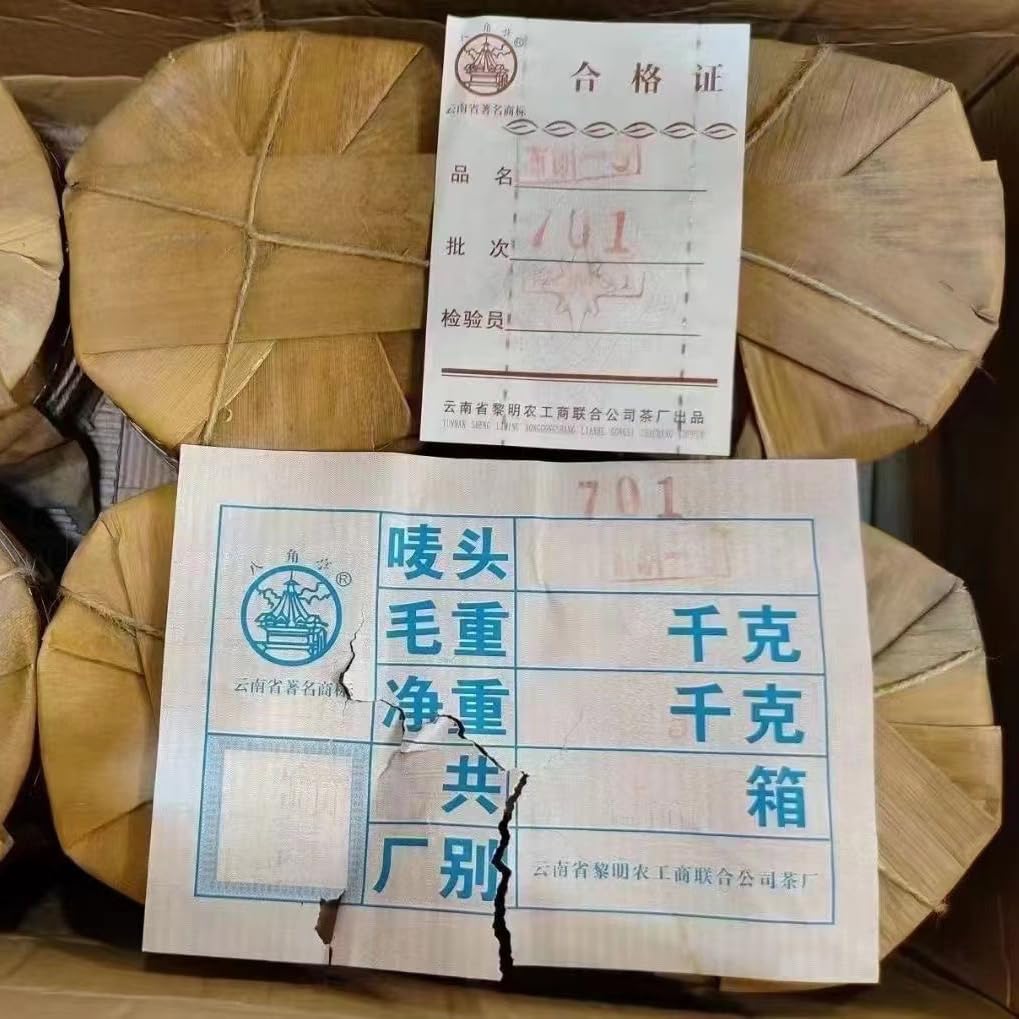 八角亭®
云南省著名商标
合格证
品名
批次 701
检验员
云南省黎明农工商联合公司茶厂出品
YUNNAN SHENG LIMING NONGGONGSHANG LIANHE GONGSI CHACHANG CHUPIN
701
八角亭®
云南省著名商标
唛头
毛重 千克
净重 千克
共 箱
厂别 云南省黎明农工商联合公司茶厂